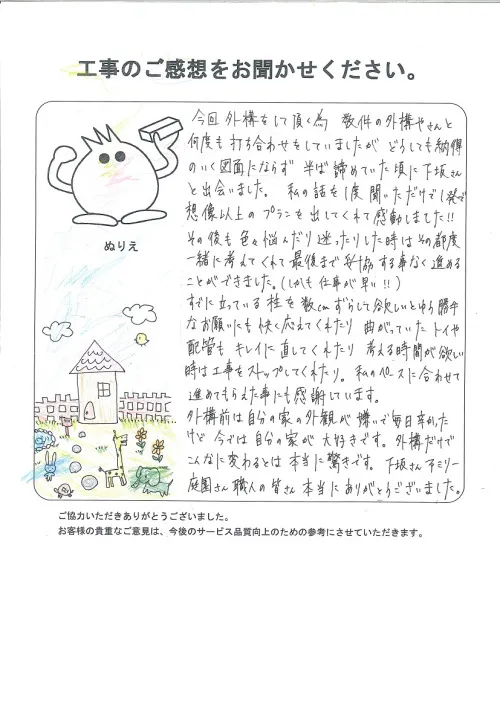 工事のご感想をお聞かせください。
今回外構をして頂く為 数件の外構やさんと
何度も打ち合わせをしていましたが どうしても納得
のいく図面にならず 半ば諦めていた頃に下坂さん
と出会いました。 私の話を1度聞いただけで1発で
想像以上のプランを出してくれて感動しました!!
その後も色々悩んだり迷ったりした時はその都度
一緒に考えてくれて最後まで妥協する事なく進める
ことができました。(しかも仕事が早い!!)
すでに立っている柱を数cmずらして欲しいとゆう勝手
なお願いにも快く応えてくれたり 曲がっていたトイや
配管も キレイに直してくれたり 考える時間が欲しい
時は工事をストップしてくれたり。私のペースに合わせて
進めてもらえた事にも感謝しています。
外構前は自分の家の外観が嫌いで毎日辛かった
けど 今では自分の家が大好きです。外構だけで
こんなに変わるとは本当に驚きです。下坂さん
庭園さん 職人の皆さん 本当にありがとうございました。
ぬりえ
ご協力いただきありがとうございました。
お客様の貴重なご意見は、今後のサービス品質向上のための参考にさせていただきます。